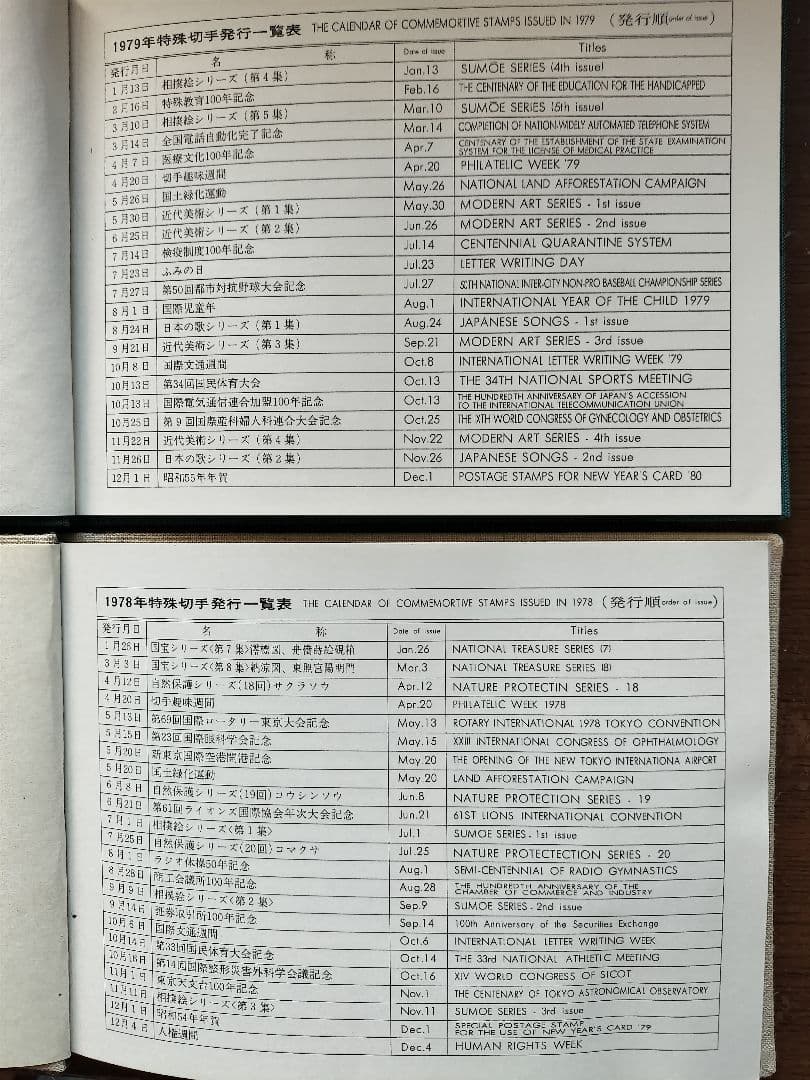 1979年特殊切手発行一覧表 THE CALENDAR OF COMMEMORTIVE STAMPS ISSUED IN 1979 (発行順 order of issue)
発行月日 名 称 Date of issue Titles
1月13日 相撲絵シリーズ(第4集) Jan.13 SUMOE SERIES (4th issue)
2月16日 特殊教育100年記念 Feb.16 THE CENTENARY OF THE EDUCATION FOR THE HANDICAPPED
3月10日 相撲絵シリーズ(第5集) Mar.10 SUMOE SERIES (5th issue)
3月14日 全国電話自動化完了記念 Mar.14 COMPLETION OF NATION-WIDELY AUTOMATED TELEPHONE SYSTEM
4月7日 医療文化100年記念 Apr.7 CENTENARY OF THE ESTABLISHMENT OF THE STATE EXAMINATION SYSTEM FOR THE LICENSE OF MEDICAL PRACTICE
4月20日 切手趣味週間 Apr.20 PHILATELIC WEEK '79
5月26日 国土緑化運動 May.26 NATIONAL LAND AFFORESTATION CAMPAIGN
5月30日 近代美術シリーズ(第1集) May.30 MODERN ART SERIES - 1st issue
6月25日 近代美術シリーズ(第2集) Jun.26 MODERN ART SERIES - 2nd issue
7月14日 検疫制度100年記念 Jul.14 CENTENNIAL QUARANTINE SYSTEM
7月23日 ふみの日 Jul.23 LETTER WRITING DAY
7月27日 第50回都市対抗野球大会記念 Jul.27 50TH NATIONAL INTER-CITY NON-PRO BASEBALL CHAMPIONSHIP SERIES
8月1日 国際児童年 Aug.1 INTERNATIONAL YEAR OF THE CHILD 1979
8月24日 日本の歌シリーズ(第1集) Aug.24 JAPANESE SONGS - 1st issue
9月21日 近代美術シリーズ(第3集) Sep.21 MODERN ART SERIES - 3rd issue
10月8日 国際文通週間 Oct.8 INTERNATIONAL LETTER WRITING WEEK '79
10月13日 第34回国民体育大会 Oct.13 THE 34TH NATIONAL SPORTS MEETING
10月13日 国際電気通信連合加盟100年記念 Oct.13 THE HUNDREDTH ANNIVERSARY OF JAPAN'S ACCESSION TO THE INTERNATIONAL TELECOMMUNICATION UNION
10月25日 第9回国際産科婦人科連合大会記念 Oct.25 THE IXTH WORLD CONGRESS OF GYNECOLOGY AND OBSTETRICS
11月22日 近代美術シリーズ(第4集) Nov.22 MODERN ART SERIES - 4th issue
11月26日 日本の歌シリーズ(第2集) Nov.26 JAPANESE SONGS - 2nd issue
12月1日 昭和55年年賀 Dec.1 POSTAGE STAMPS FOR NEW YEAR'S CARD '80
1978年特殊切手発行一覧表 THE CALENDAR OF COMMEMORTIVE STAMPS ISSUED IN 1978 (発行順 order of issue)
発行月日 名 称 Date of issue Titles
1月26日 国宝シリーズ<第7集>澪標図、舟橋蒔絵硯箱 Jan.26 NATIONAL TREASURE SERIES (7)
3月3日 国宝シリーズ<第8集>納涼図、東照宮陽明門 Mar.3 NATIONAL TREASURE SERIES (8)
4月12日 自然保護シリーズ(18回)サクラソウ Apr.12 NATURE PROTECTIN SERIES - 18
4月20日 切手趣味週間 Apr.20 PHILATELIC WEEK 1978
5月13日 第69回国際ロータリー東京大会記念 May.13 ROTARY INTERNATIONAL 1978 TOKYO CONVENTION
5月15日 第23回国際眼科学会記念 May.15 XXIII INTERNATIONAL CONGRESS OF OPHTHALMOLOGY
5月20日 新東京国際空港開港記念 May.20 THE OPENING OF THE NEW TOKYO INTERNATIONA AIRPORT
5月20日 国土緑化運動 May 20 LAND AFFORESTATION CAMPAIGN
6月8日 自然保護シリーズ(19回)コウシンソウ Jun.8 NATURE PROTECTION SERIES - 19
6月21日 第61回ライオンズ国際協会年次大会記念 Jun.21 61ST LIONS INTERNATIONAL CONVENTION
7月1日 相撲絵シリーズ<第1集> Jul.1 SUMOE SERIES - 1st issue
7月25日 自然保護シリーズ(20回)コマクサ Jul.25 NATURE PROTECTECTION SERIES - 20
8月1日 ラジオ体操50年記念 Aug.1 SEMI-CENTENNIAL OF RADIO GYMNASTICS
8月28日 商工会議所100年記念 Aug.28 THE HUNDREDTH ANNIVERSARY OF THE CHAMBER OF COMMERCE AND INDUSTRY
9月9日 相撲絵シリーズ<第2集> Sep.9 SUMOE SERIES - 2nd issue
9月14日 証券取引所100年記念 Sep.14 100th Anniversary of the Securities Exchange
10月6日 国際文通週間 Oct.6 INTERNATIONAL LETTER WRITING WEEK
10月14日 第33回国民体育大会記念 Oct.14 THE 33rd NATIONAL ATHLETIC MEETING
10月16日 第14回国際整形災害外科学会議記念 Oct.16 XIV WORLD CONGRESS OF SICOT
11月1日 東京天文台100年記念 Nov.1 THE CENTENARY OF TOKYO ASTRONOMICAL OBSERVATORY
11月11日 相撲絵シリーズ<第3集> Nov.11 SUMOE SERIES - 3rd issue
12月1日 昭和54年年賀 Dec.1 SPECIAL POSTAGE STAMP FOR THE USE OF NEW YEAR'S CARD '79
12月4日 人権週間 Dec.4 HUMAN RIGHTS WEEK